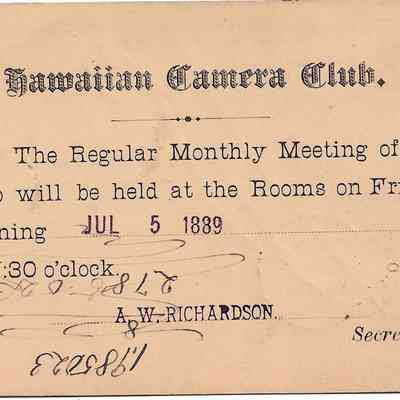 Hawaiian Camera Club.
The Regular Monthly Meeting of
will be held at the Rooms on Fri
ning JUL 5 1889
:30 o'clock.
278
A. W. RICHARDSON.
8
Secre
1.985223